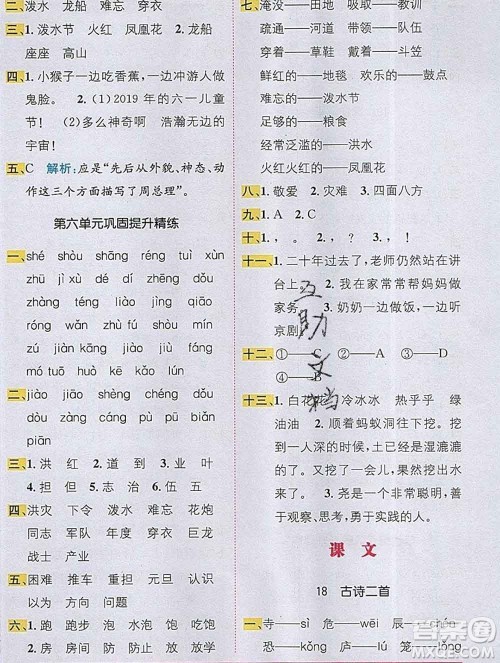 二、泼水 龙船 难忘 穿衣
三、1. 泼水节 火红 凤凰花 2. 龙船
座座 高山
四、1. 小猴子一边吃香蕉，一边冲游人做
鬼脸。 2.（1）2019 年的六一儿童
节！（2）多么神奇啊 浩瀚无边的
宇宙！
五、C 解析：应是“先后从外貌、神态、动
作这三个方面描写了周总理”。
第六单元巩固提升精练
一、shé shòu shāng réng tuì xùn
zhī jù xì dí dí zhēng dǒu
duì zhàng fú shòu shāng bù
zú jiàn kāng jiāng jiāng háng
mó tuō fǔ kè kǎo lú
二、jiào jiāo shèng chéng dǒu
dòu dāng dàng pú pù biàn
pián
三、1. 洪 红 2. 道 到 3. 业 叶
4. 担 但 5. 志 治 6. 伍 五
四、洪灾 下令 泼水 难忘 花炮
同志 军队 年度 穿衣 巨龙
战士 产业
五、困难 推车 重担 元旦 认识
以为 方向 问题
六、1. 跑 跑步 泡 泡水 饱 吃饱
2. 防 防止 访 访友 放 放学
七、淹没——田地 吸取——教训
流通——河道 带领——队伍
穿着——衣服 戴着——头巾
鲜红的——地毯 欢乐的——鼓点
难忘的——泼水节
足够的——粮食
经常泛滥的——洪水
火红火红的——凤凰花
八、1. 敬爱 2. 灾难 3. 四面八方
九、1. A 2. C
十、1. ， 。 2. ， ， ？ 3. ， ！
十一、1. 二十年过去了，老师仍然站在讲
台上。 2. 我在家常常帮妈妈做
家务。 3. 奶奶一边做饭，一边听
京剧。
十二、①——C ②——A ③——D
④——B
十三、1. 白花花 冷冰冰 热乎乎 绿
油油 2. 顺着蚂蚁洞往下挖。挖
到一人深的时候，土已经是湿漉漉
的一片，大伙儿更来劲了。果然，
没挖多久，地下就冒出水
来了。 3. 尧是一个非常聪明，善
于观察、思考，勇于实践的人。
课文
18 古诗二首
一、寺——sì 危——wēi 辰——chén
恐——kǒng 庐——lú 笼——lǒng
互助文档
答案圈
MXQE.COM